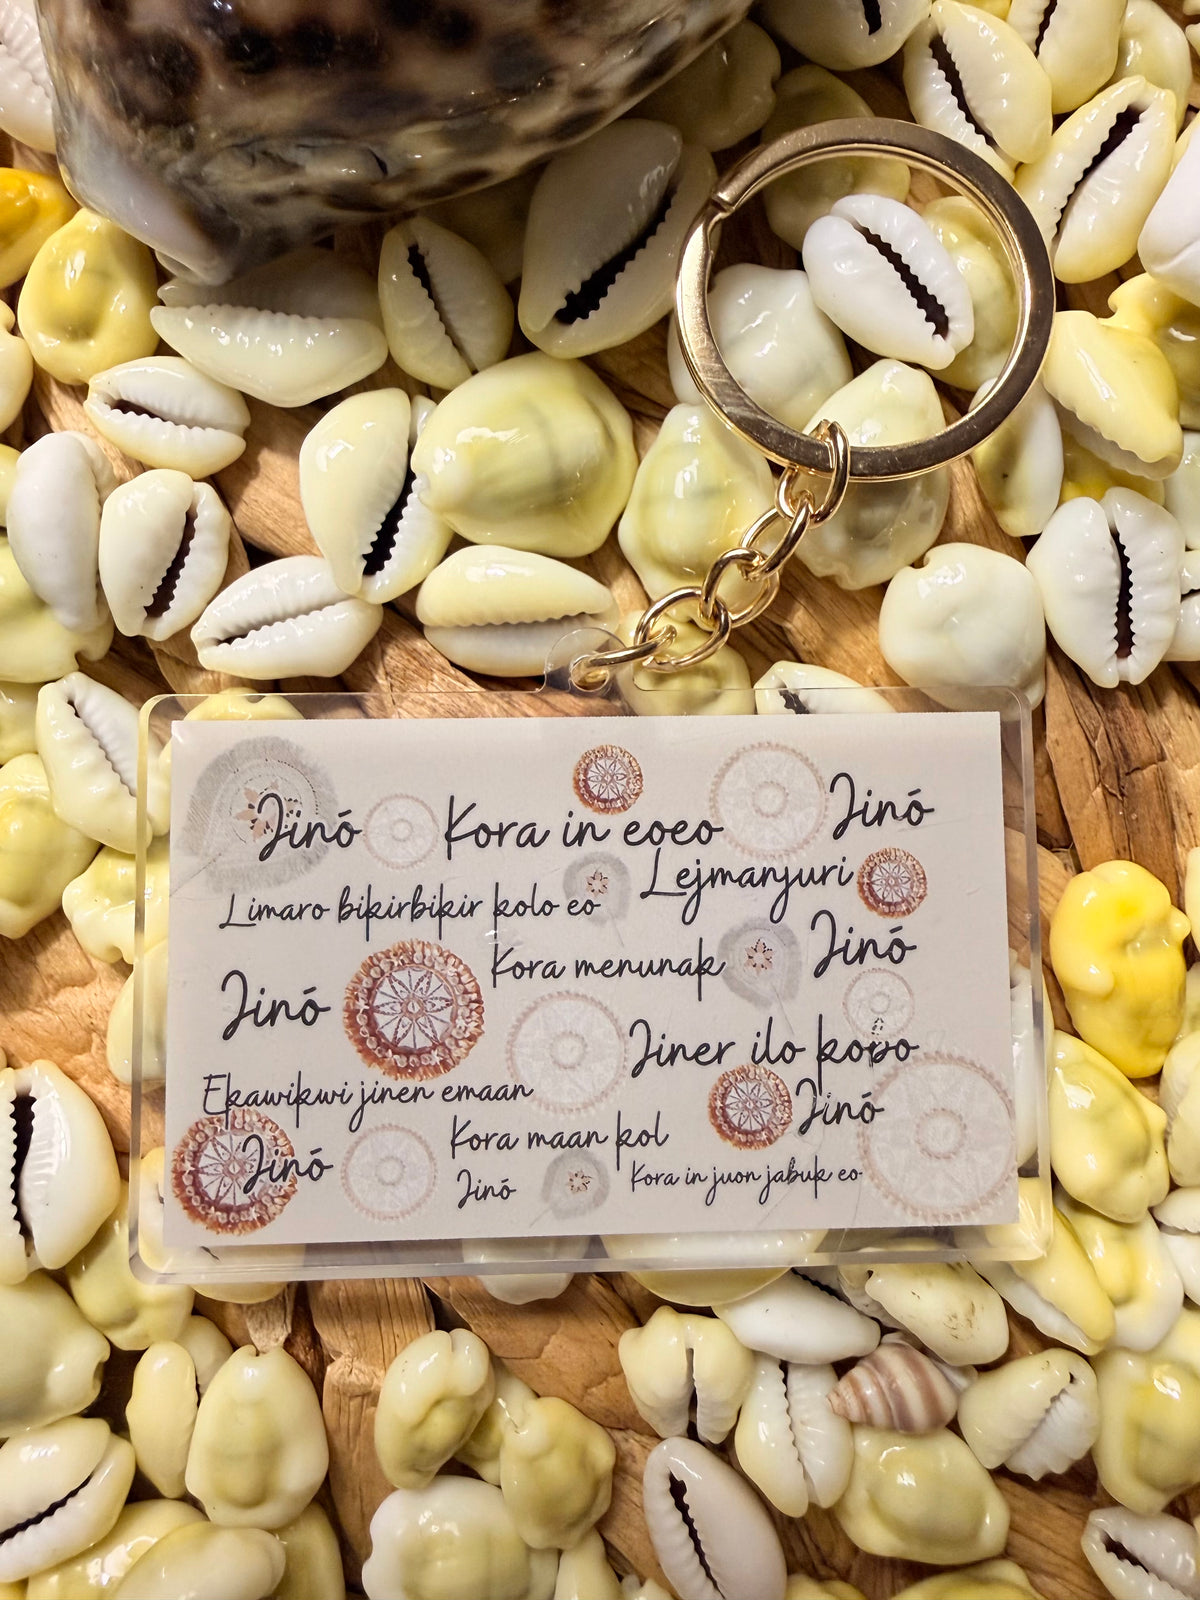 Jinó
Kora in eoeo
Jinó
Lejmanjuri
Limaro bikirbikir kolo eo
Kora menunak
Jinó
Jinó
Jiner ilo kobo
Ekawikwi jinen emaan
Jinó
Kora maan kol
Jinó
Jinó
Kora in juon jabuk eo